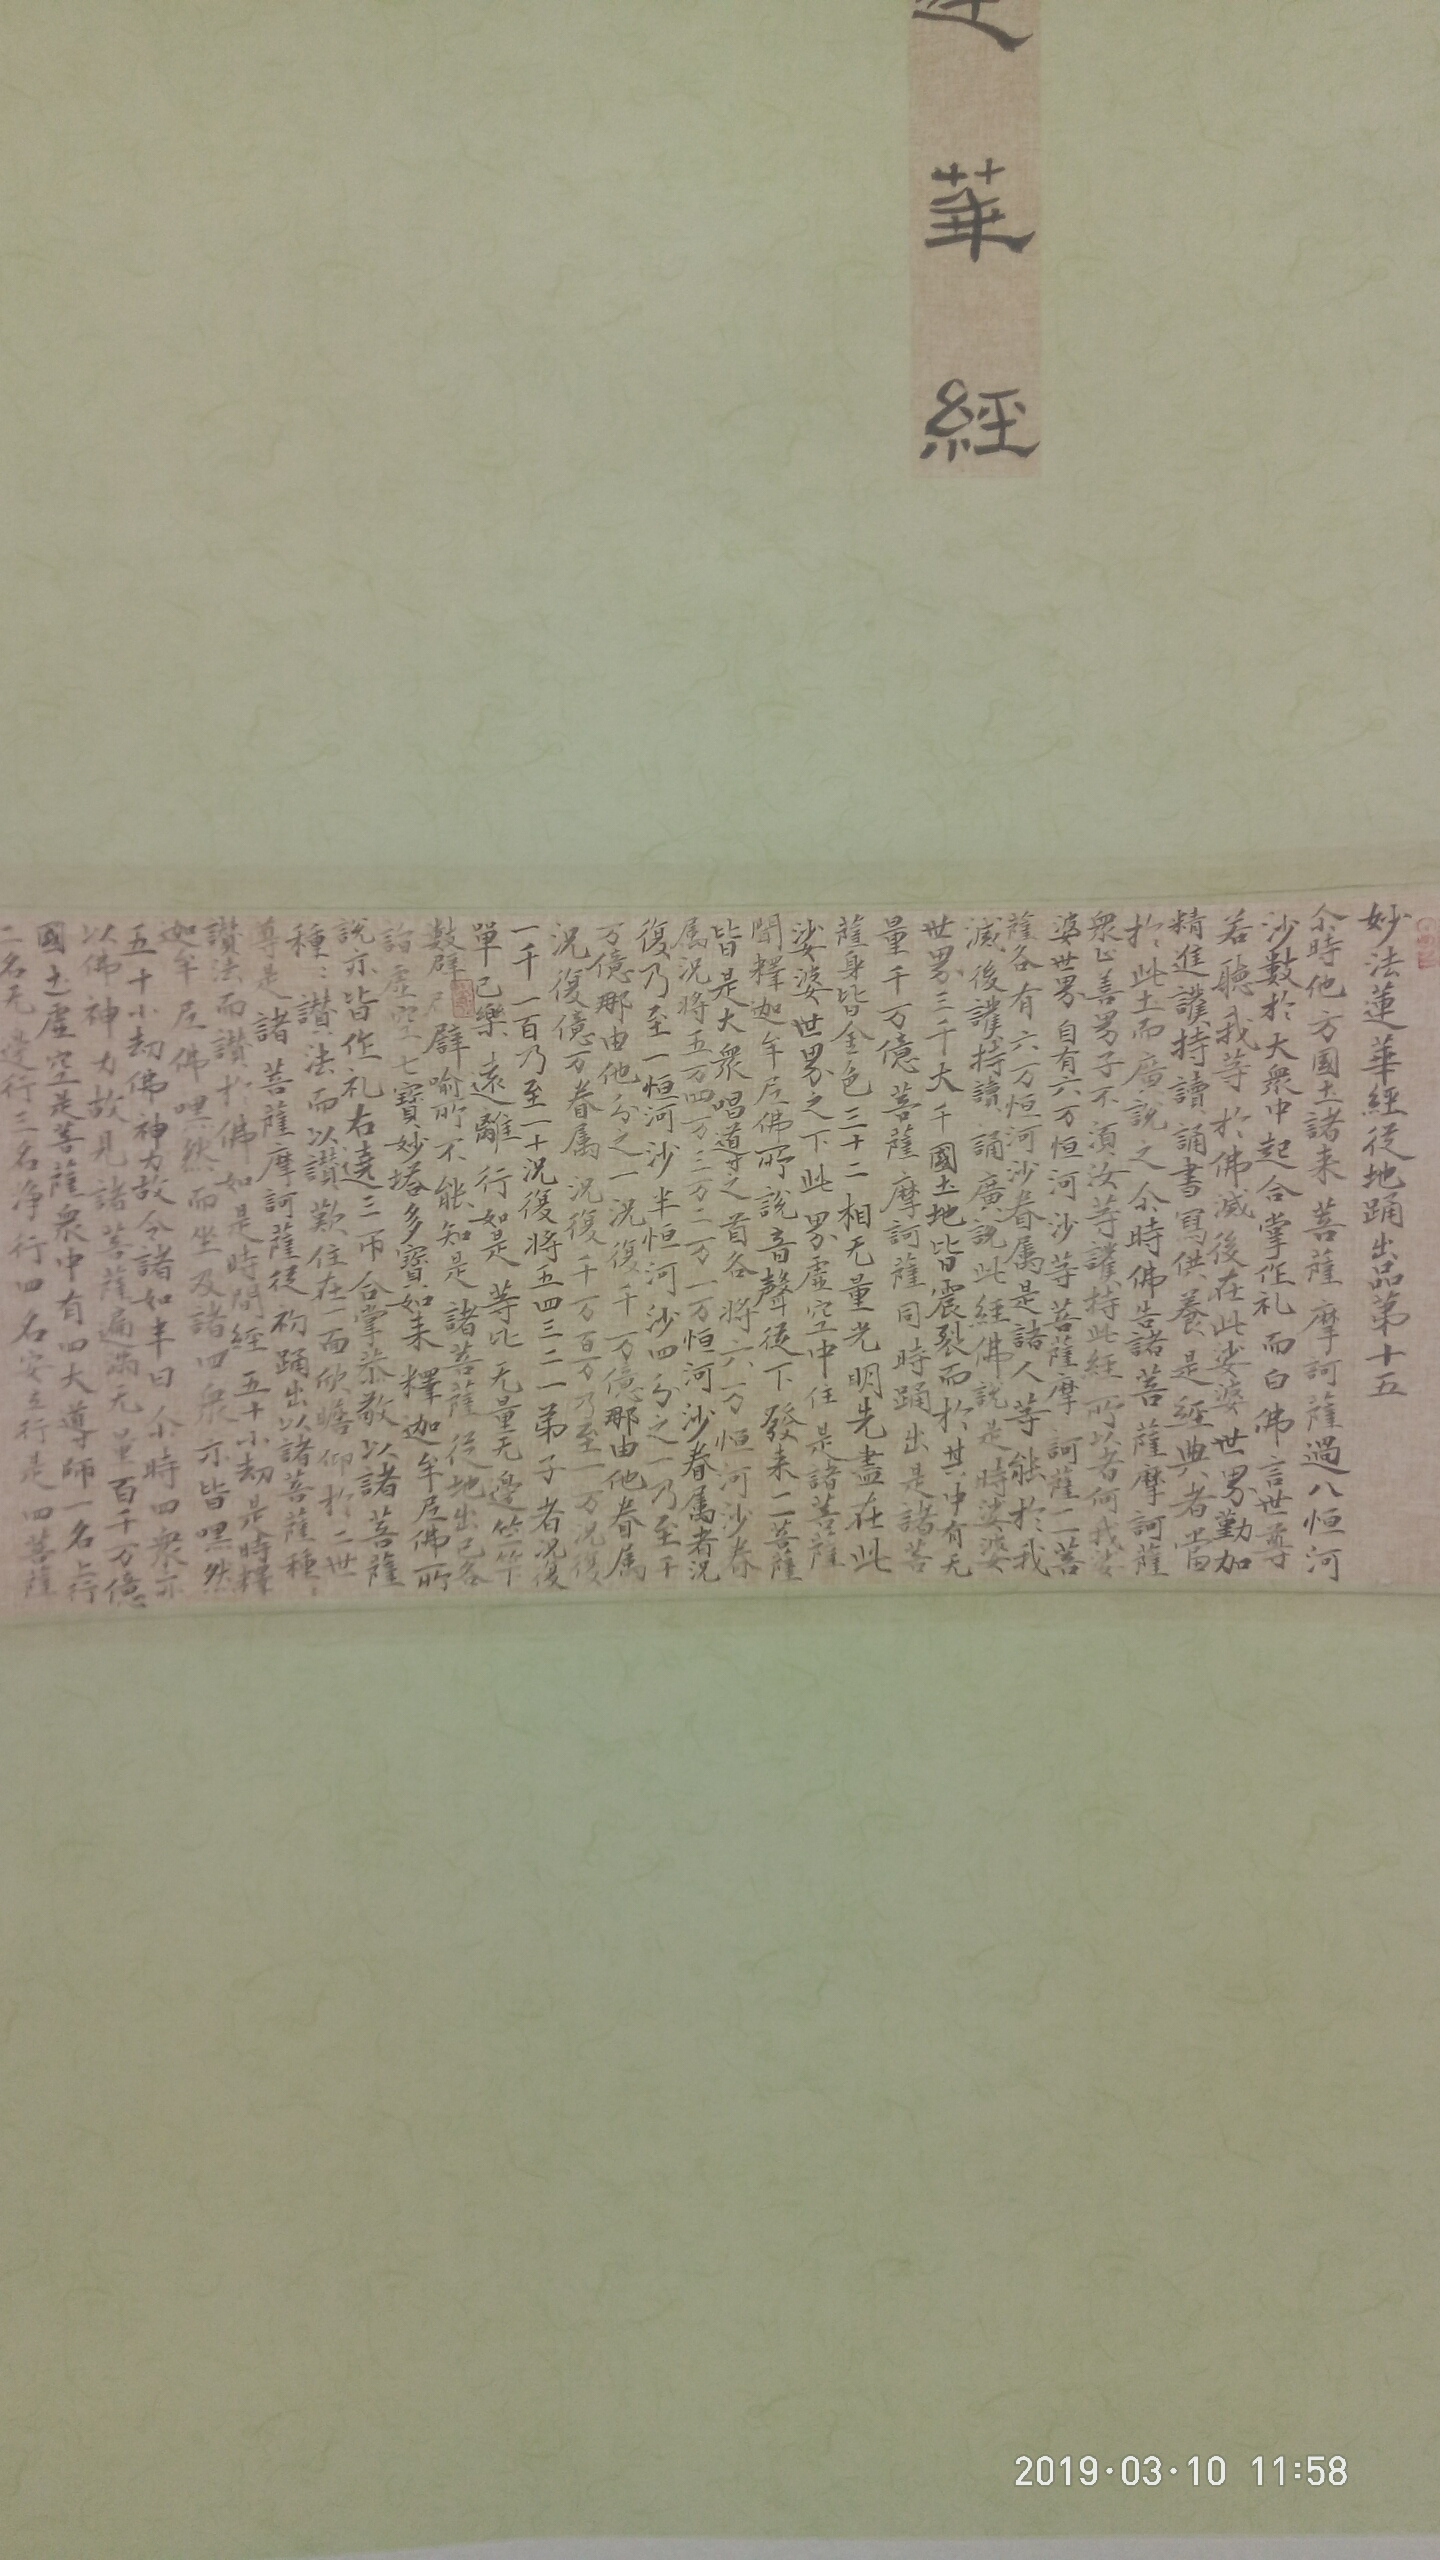 華經
妙法蓮華經從地踊出品第十五
尒時他方國土諸来菩薩摩訶薩過八恒河
沙數於大衆中起合掌作礼而白佛言世尊
若聽我等於佛滅後在此娑婆世界勤加
精進護持讀誦書寫供養是經典者當
於此土而廣說之尒時佛告諸菩薩摩訶薩
衆止善男子不湏汝等護持此經所以者何我娑
婆世界自有六万恒河沙等菩薩摩訶薩一二菩
薩各有六万恒河沙眷属是諸人等能於我
滅後護持讀誦廣說此經佛說是時娑婆
世界三千大千國土地皆震裂而於其中有无
量千万億菩薩摩訶薩同時踊出是諸菩
薩身皆金色三十二相无量光明先盡在此
娑婆世界之下此界虛空中住是諸菩薩
聞釋迦牟尼佛所說音聲從下發来一二菩薩
皆是大衆唱導之首各將六万恒河沙眷
属況將五万四万三万二万一万恒河沙眷属者況
復乃至一恒河沙半恒河沙四分之一乃至千
万億那由他分之一況復千万億那由他眷属
況復億万眷属況復千万百万乃至一万況復
一千一百乃至一十況復將五四三二一弟子者況復
單己樂遠離行如是等比无量无邊竿竿
數辟譬喻所不能知是諸菩薩從地出已各
詣虛空七寶妙塔多寶如来釋迦牟尼佛所
說亦皆作礼右遶三帀合掌恭敬以諸菩薩
種：讃法而以讃歎住在一面欣瞻仰於二世
尊是諸菩薩摩訶薩從初踊出以諸菩薩種：
讃法而讃於佛如是時間經五十小劫是時釋
迦牟尼佛嘿然而坐及諸四衆亦皆嘿然
五十小劫佛神力故令諸如半日尒時四衆亦
以佛神力故見諸菩薩遍滿无量百千万億
國土虛空是菩薩衆中有四大導師一名上行
二名无邊行三名淨行四名安立行是四菩薩
2019·03·10 11:58